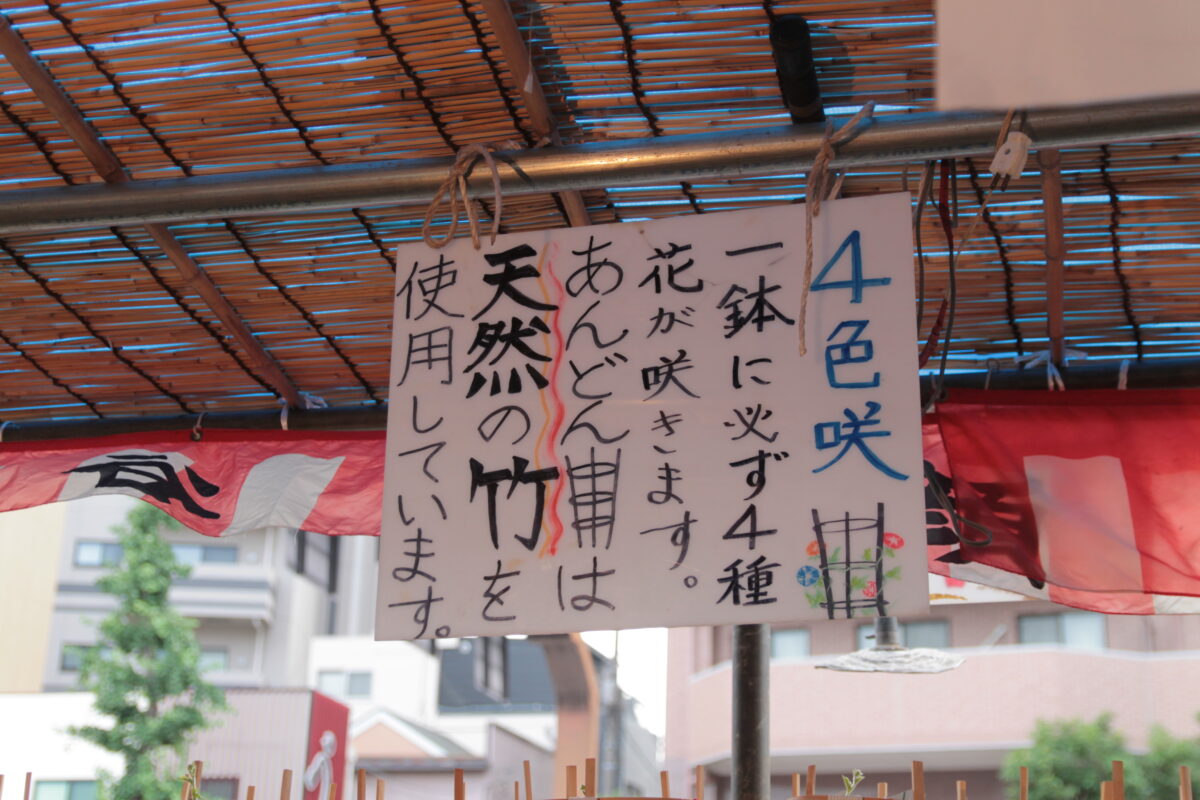 4色咲
一鉢に必ず4種
花が咲きます。
あんどんは
天然の竹を
使用しています。